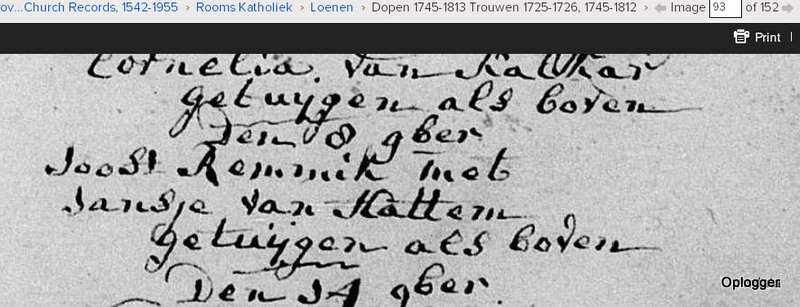 ov...Church Records, 1542-1955 › Rooms Katholiek › Loenen › Dopen 1745-1813 Trouwen 1725-1726, 1745-1812 › Image 93 of 152
Print
Cornelia van Kalkar
getuijgen als boven
Den 8 9ber
Joost Remmik met
Jansje van Hattem
getuijgen als boven
Den 14 9ber
Oplogger